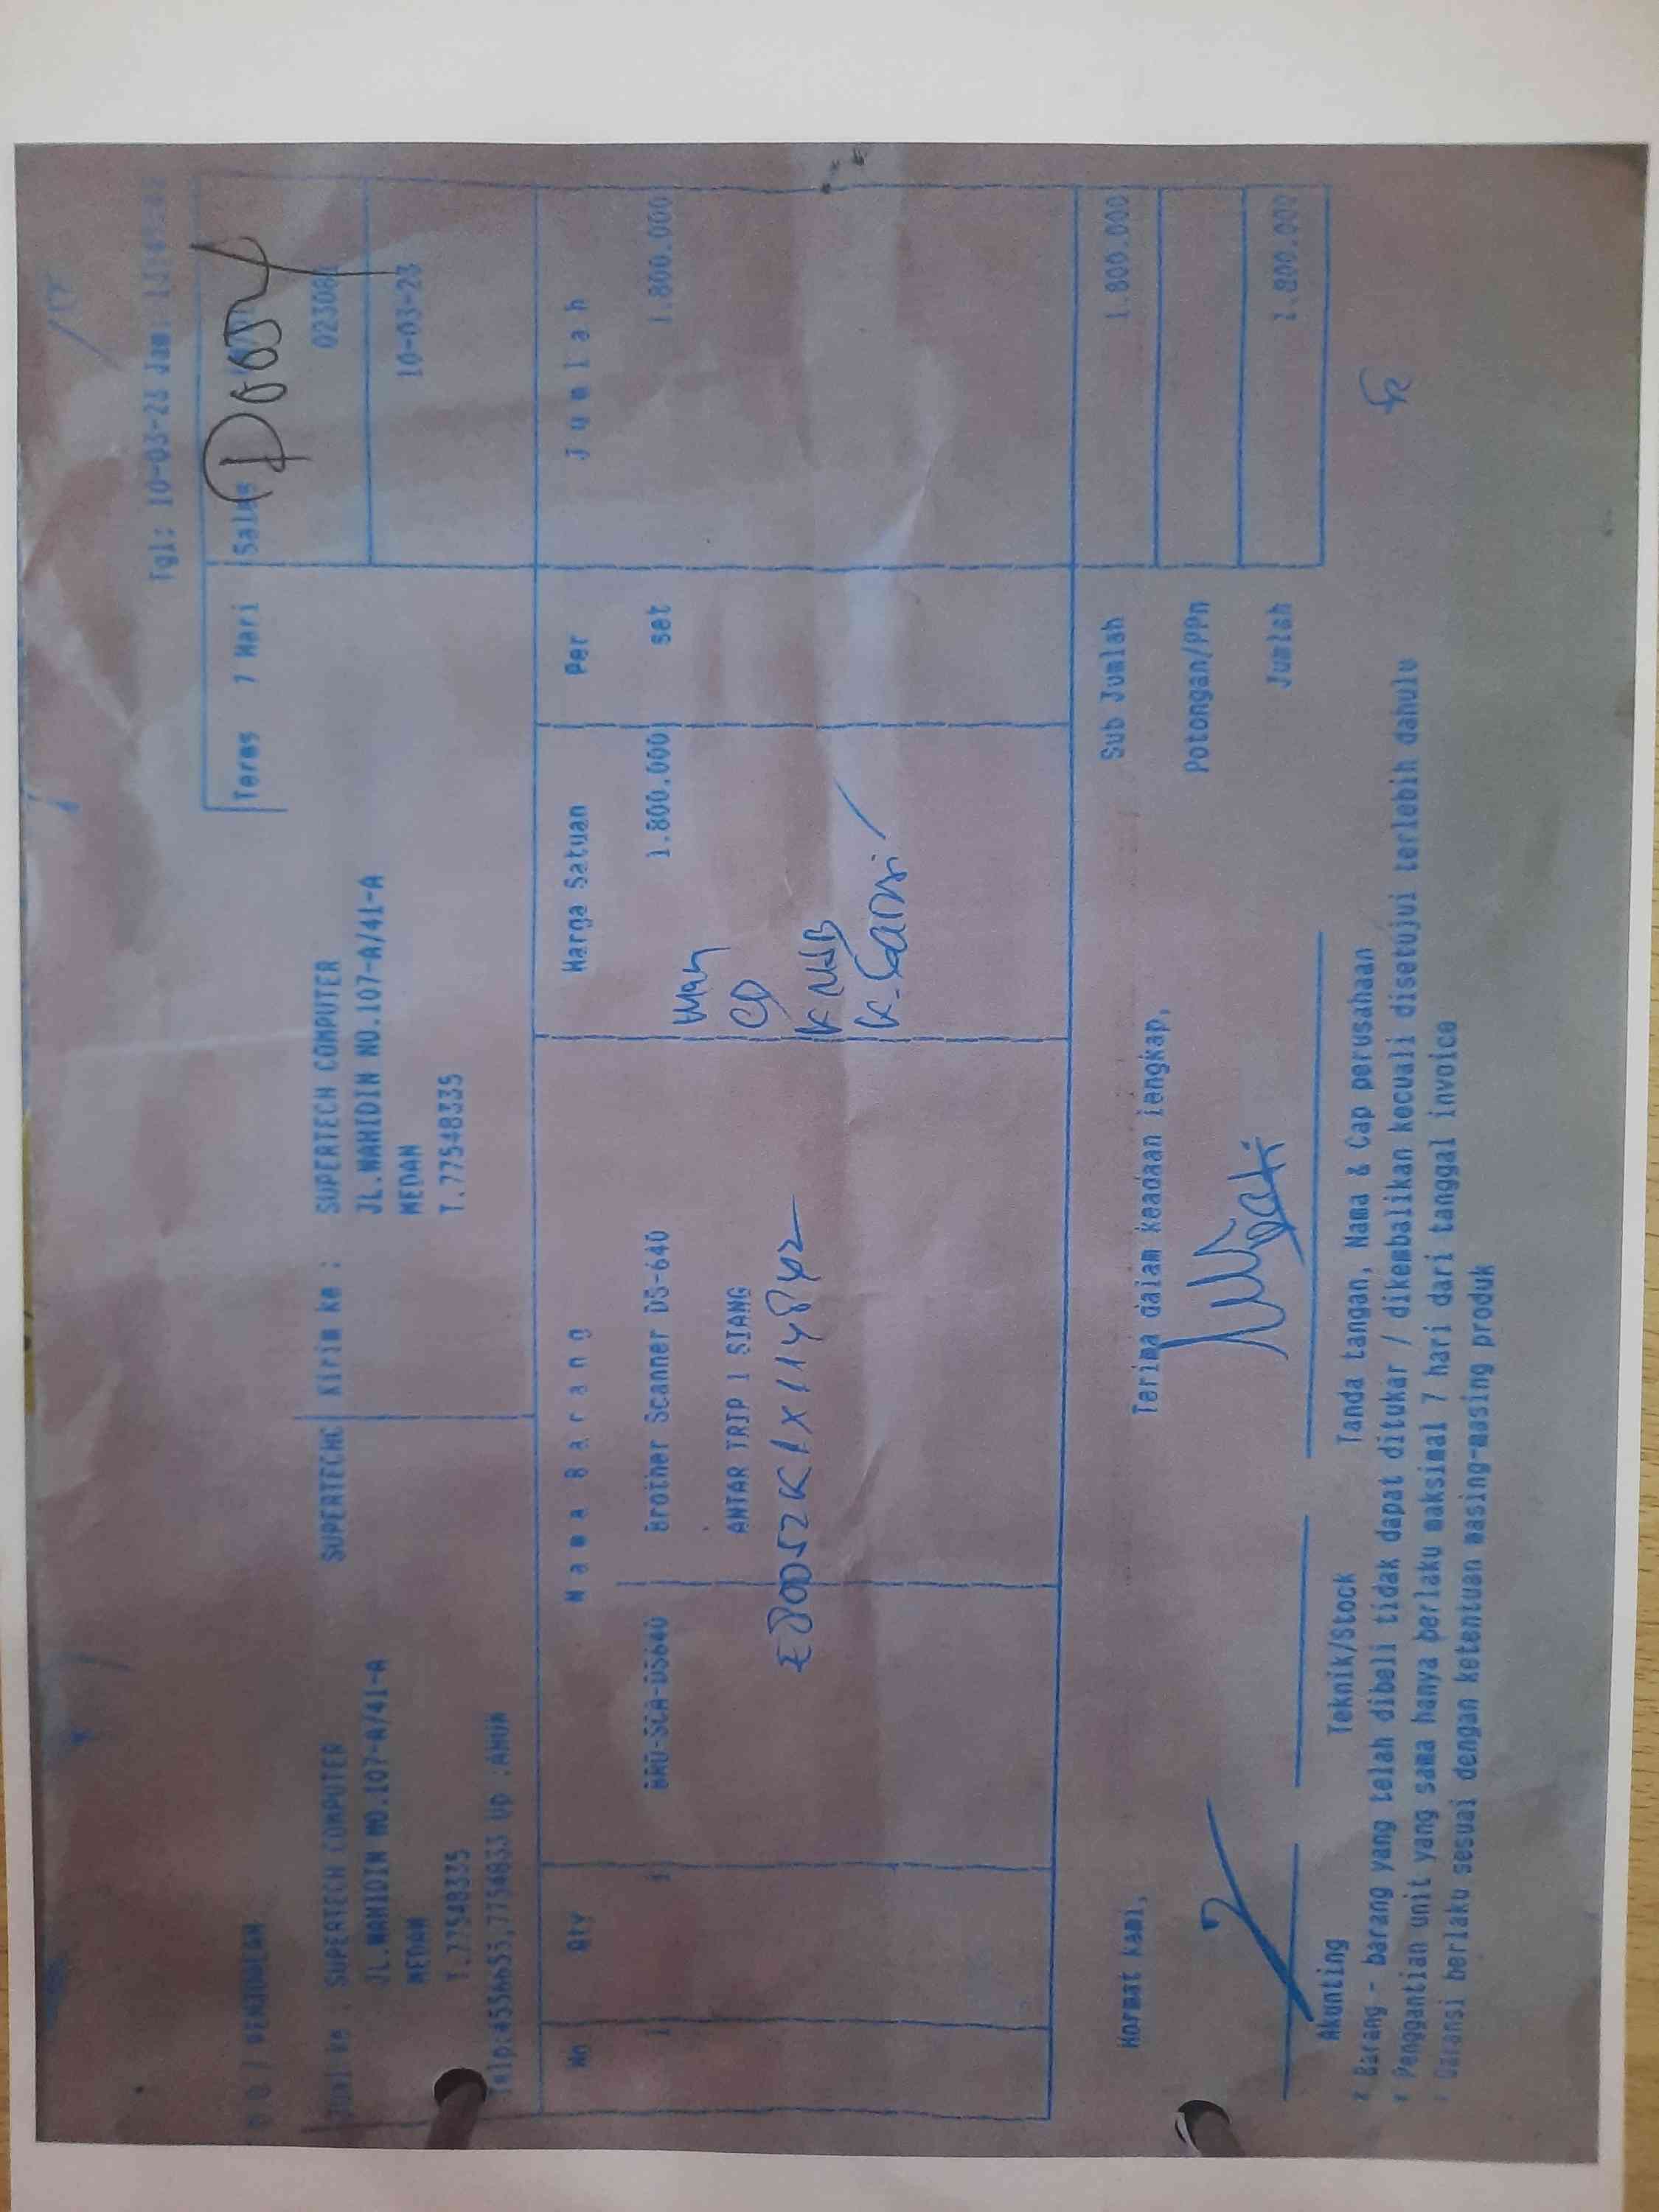 Tgl: 10-03-23 Jam:
Terms 7 Hari Sales
02308
10-03-23
/ PENJUALAN
Jual ke : SUPERTECH COMPUTER SUPERTECHC Kirim ke : SUPERTECH COMPUTER
JL.WAHIDIN NO.107-A/41-A JL.WAHIDIN NO.107-A/41-A
MEDAN MEDAN
T.77548335 T.77548335
Telp:4536653,7754833 Up :AHUA
No Qty Nama Barang Harga Satuan Per Jumlah
1 1 BRO-SCA-DS640 Brother Scanner DS-640 1.800.000 set 1.800.000
ANTAR TRIP 1 SIANG
E80052K1X114842
CD
Hormat kami, Terima dalam keadaan lengkap, Sub Jumlah 1.800.000
Potongan/PPn
Jumlah 1.800.000
Akunting Teknik/Stock Tanda tangan, Nama & Cap perusahaan
* Barang - barang yang telah dibeli tidak dapat ditukar / dikembalikan kecuali disetujui terlebih dahulu
* Penggantian unit yang sama hanya berlaku maksimal 7 hari dari tanggal invoice
* Garansi berlaku sesuai dengan ketentuan masing-masing produk